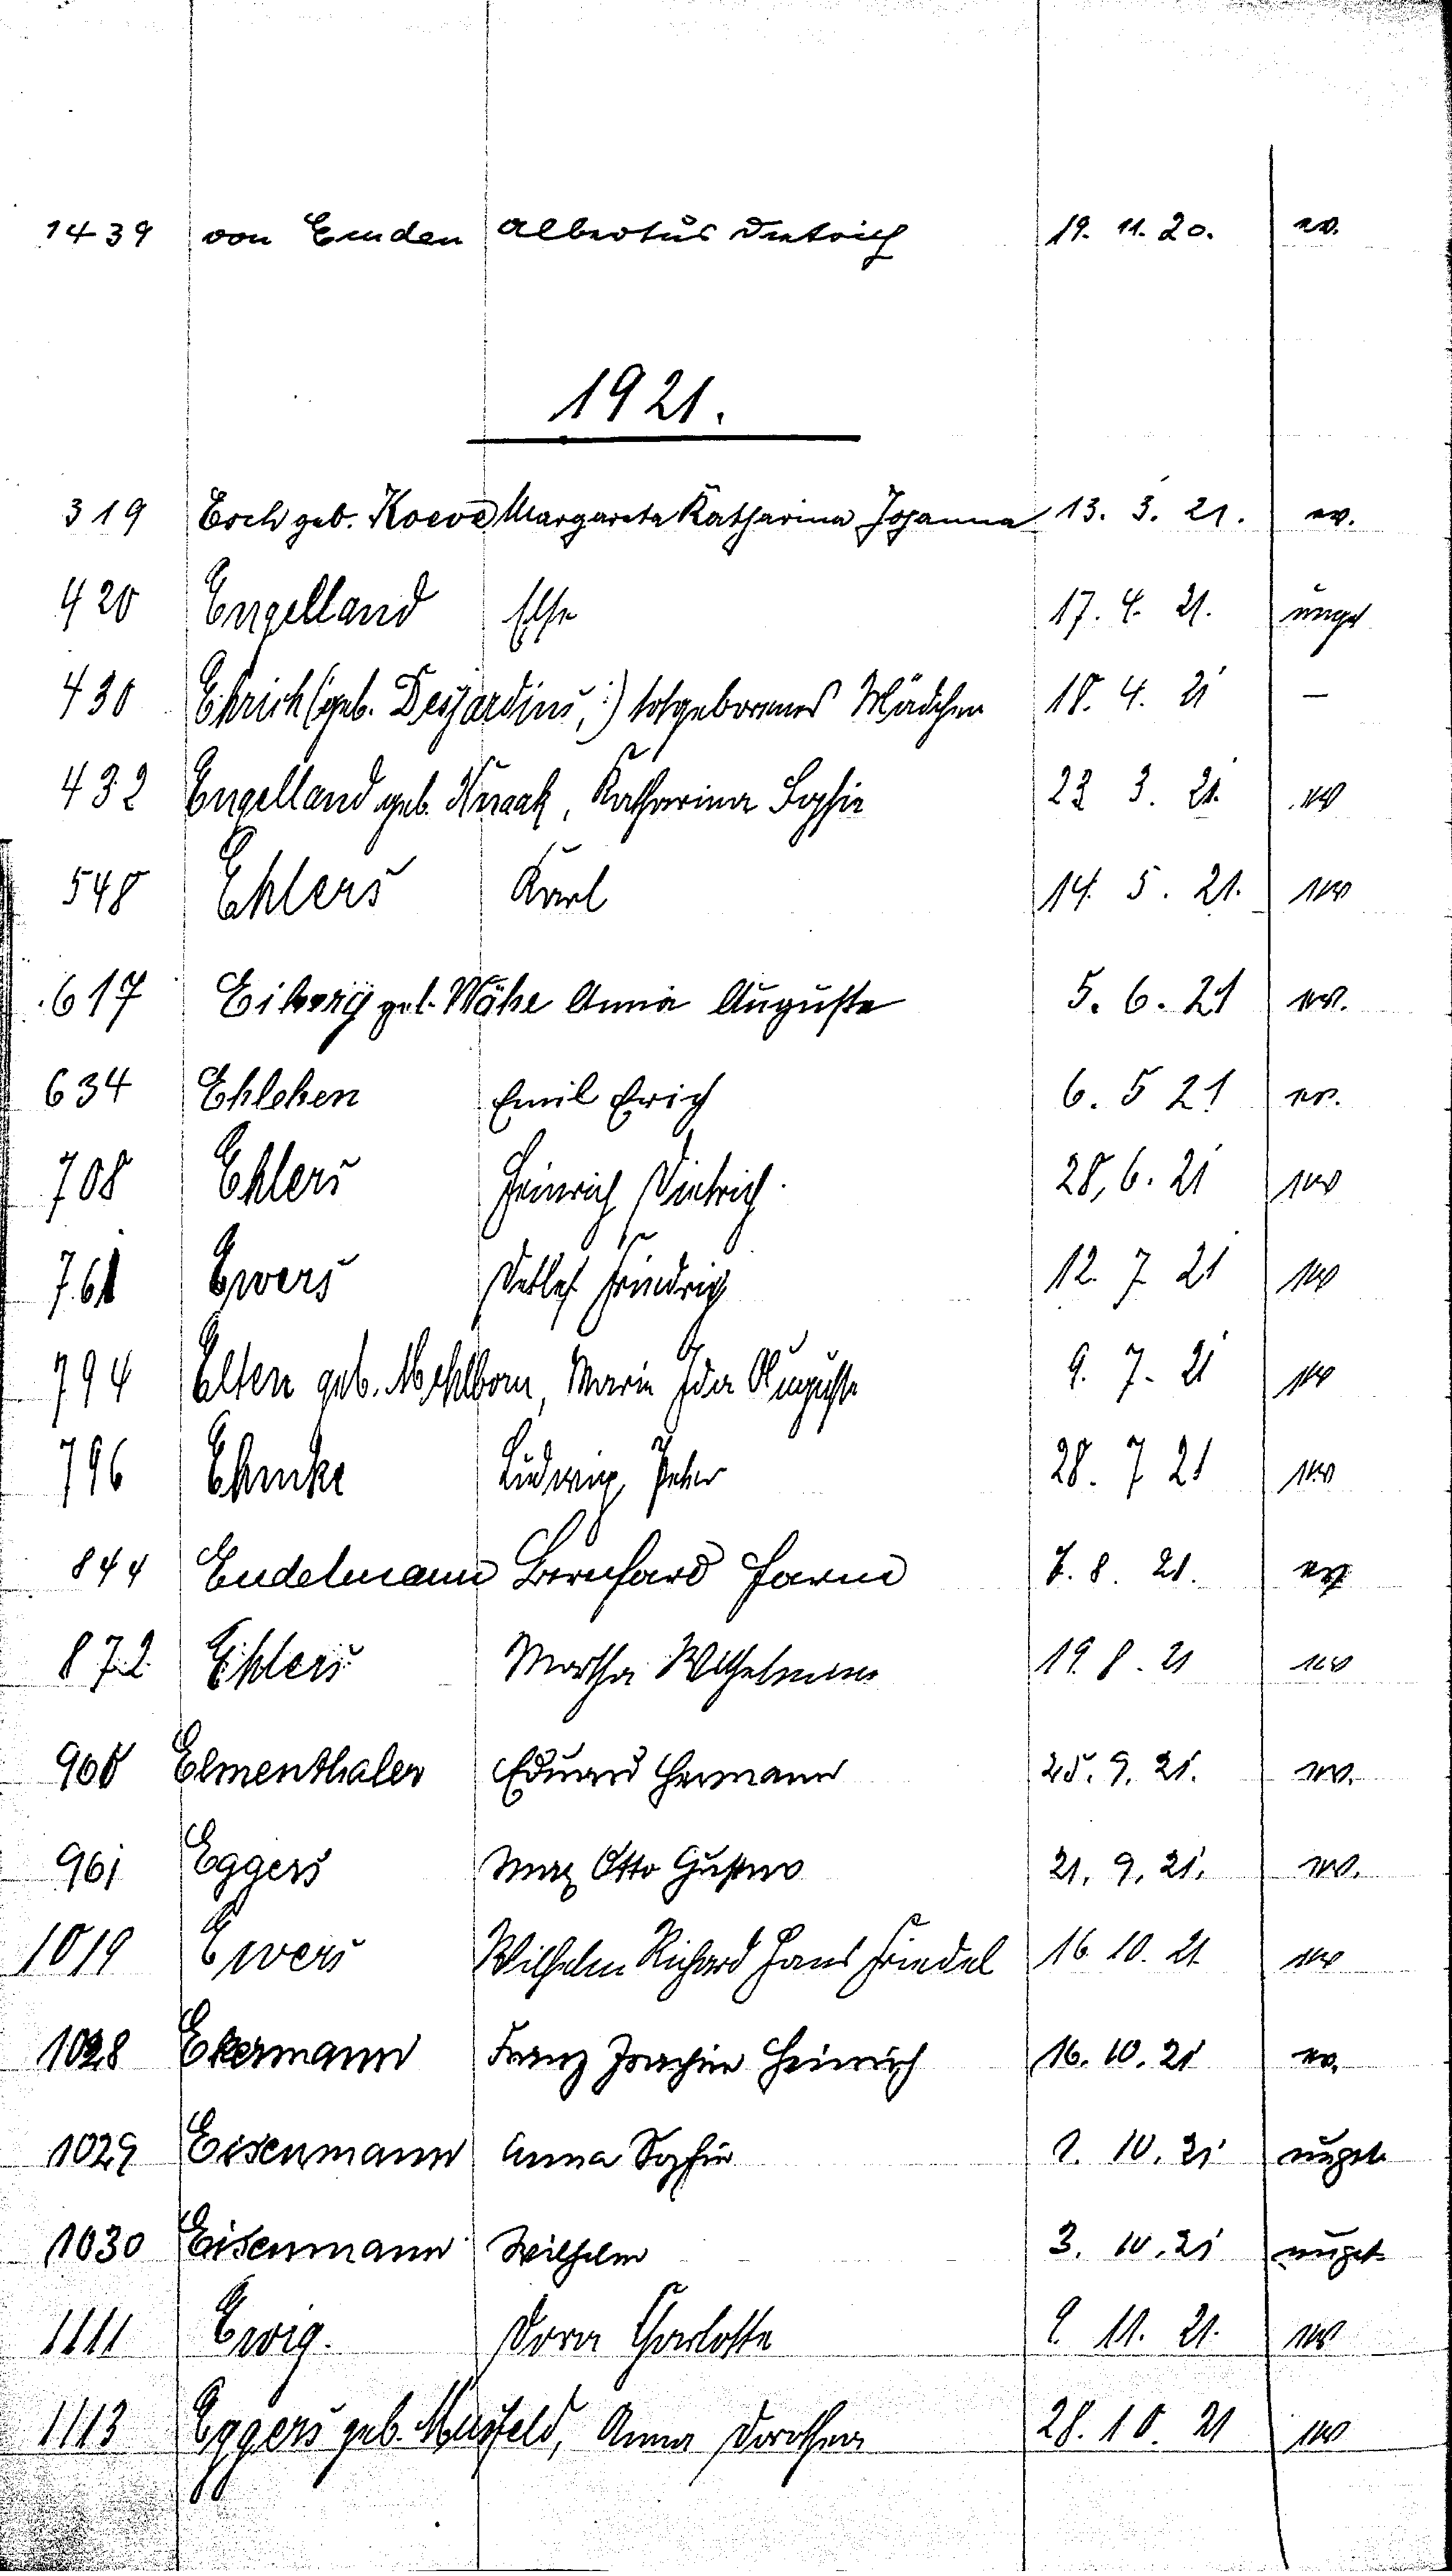 1439 von Emden Albertus Dietrich 19. 11. 20. ev.
1921.
319 Esch geb. Koeve Margareta Katharina Johanna 13. 3. 21. ev.
420 Engelland Else 17. 4. 21. unget
430 Ehrich (geb. Desjardins,) totgeborenes Mädchen 18. 4. 21 —
432 Engelland geb. Knaak, Katharina Sophie 23 3. 21. ev
548 Ehlers Karl 14. 5. 21. ev
617 geb. Wöhe Anna Auguste 5. 6. 21 ev.
634 Emil Erich 6. 5 21 ev.
708 Ehlers Heinrich Dietrich 28, 6. 21 ev
761 Ewers Detlef Friedrich 12. 7 21 ev
794 Elten geb. Mehlborn, Marie Ida Auguste 9. 7. 21 ev
796 Ehmke Ludwig Peter 28. 7 21 ev
844 Endelmann Bernhard Harm 7. 8. 21. ev
872 Ehlers Martha Wilhelmine 19. 8. 21 ev
960 Elmenthaler Eduard Hermann 25. 9. 21. ev.
961 Eggers Max Otto Gustav 21. 9. 21. ev.
1019 Ewers Wilhelm Richard Hans Friedel 16. 10. 21 ev
1028 Ekermann Franz Joachim Heinrich 16. 10. 21 ev.
1029 Eisenmann Anna Sophie 1. 10. 21 unget.
1030 Eisenmann Wilhelm 3. 10. 21 unget.
1111 Ewig. Dora Charlotte 9. 11. 21. ev
1113 Eggers geb. Musfeld, Anna Dorothea 28. 10. 21 ev